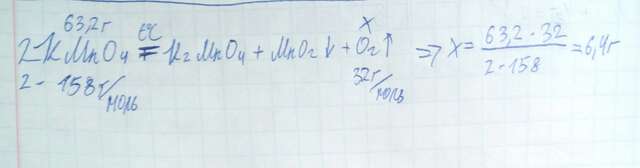 63,2г t°C x
2KMnO₄ = K₂MnO₄ + MnO₂↓ + O₂↑ => x = 63,2 · 32 / 2 · 158 = 6,4г
2 · 158г/моль 32г/моль